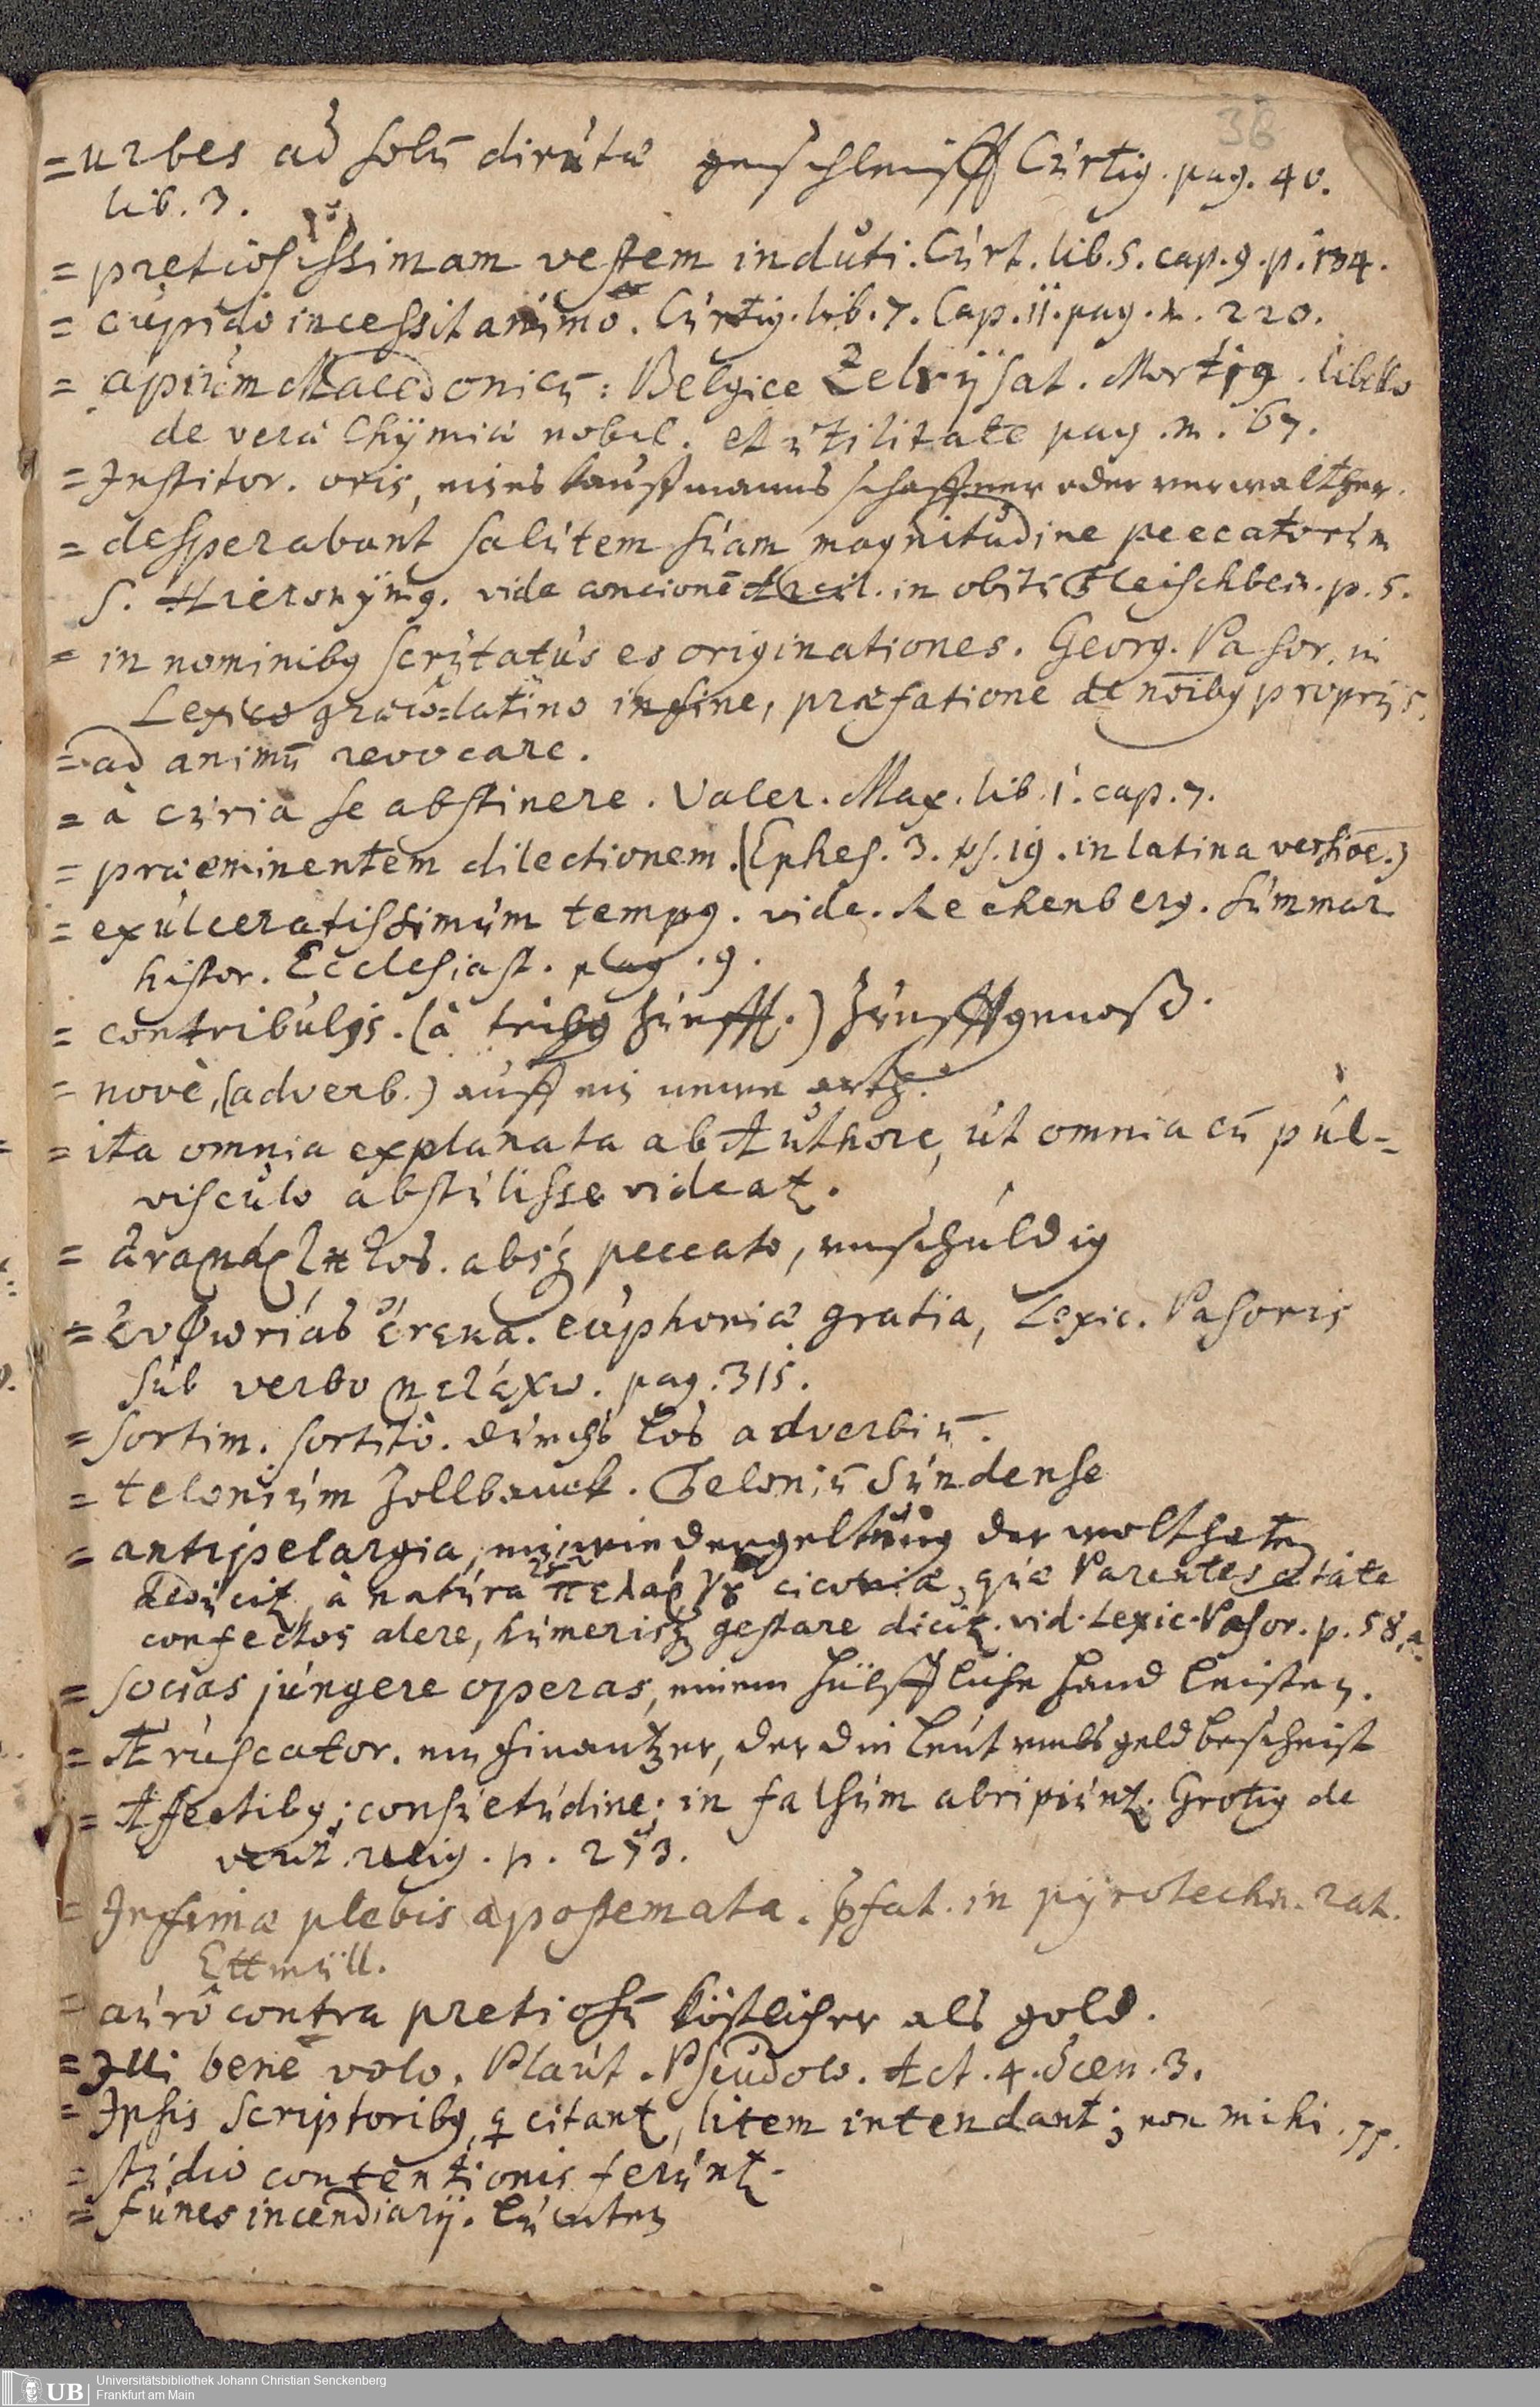 36
= urbes ad solū dirutæ geschleifft Curtiꝰ. pag. 40.
lib. 3.
= pretiosissimam vestem induti. Curt. lib. 5. cap. 9. p. 134.
= cupido incessit animō. Curtiꝰ. lib. 7. Cap. 11. pag. m. 220.
= apium Macedonicū: Belgice Zelrÿsat. libello
de vera Chÿmiæ nobil. et utilitate pag. m. 67.
= Institor. oris, eines kauffmanns schaffner oder verwalther.
= desperabant salutem suam magnitudine peccatorum
S. Hieronÿmꝰ. vide concionē Arcul. in obitū Fleischbein. p. 5.
= in nominibꝰ scrutatus es originationes. Georg. Pasor. in
Lexico græco=latino in fine, præfatione de nōibꝰ proprijs.
= ad animū revocare.
= à curia se abstinere. Valer. Max. lib. 1. cap. 7.
= præeminentem dilectionem. (Ephes. 3. ꝟs. 19. in latina versiōe.)
= exulceratissimum tempꝰ. vide. Rechenberg. summar.
histor. Ecclesiast. plag. 9.
= contribulis. (à tribꝰ Zunfft.) Zunfftgenoß.
= novè, (adverb.) auff ein newe arth.
= ita omnia explanata ab Authore, ut omnia cū pul-
visculo abstulisse videatꝛ.
= ἀναμάρτητος. absqꝫ peccato, unschuldig
= Ευφωνίας ἕνεκα. euphoniæ gratia, Lexic. Pasoris
sub verbo pag. 315.
= sortim. sortitò. durchs los adverbiū.
= telonium Zollbanck. Teloniū Sundense
= antipelargia, ein wiedergeltung der wolthaten
deducitꝛ à natura πελάργȣ ciconiæ, quæ Parentes ætate
confectos alere, humerisqꝫ gestare dicitꝛ. vid. Lexic. Pasor. p. 58. a.
= socias jungere operas, einem hülffliche hand leisten.
= Æruscator. ein finantzer, der die leut umbs geld bescheist
= Affectibꝰ; consuetudine; in falsum abripiuntꝛ. Grotiꝰ de
verit. relig. p. 273.
= Infimæ plebis apostemata. p̄fat. in pÿrotechn. rat.
Ettmüll.
= aurô contra pretiosū köstlicher als gold.
= Illi bene volo. Plaut. Pseudolo. Act. 4. Scen. 3.
= Ipsis scriptoribꝰ, q̄ citantꝛ, litem intendant; non mihi.
= studio contentionis feruntꝛ.
= funes incendiarij. Lunten
Universitätsbibliothek Johann Christian Senckenberg
Frankfurt am Main
UB